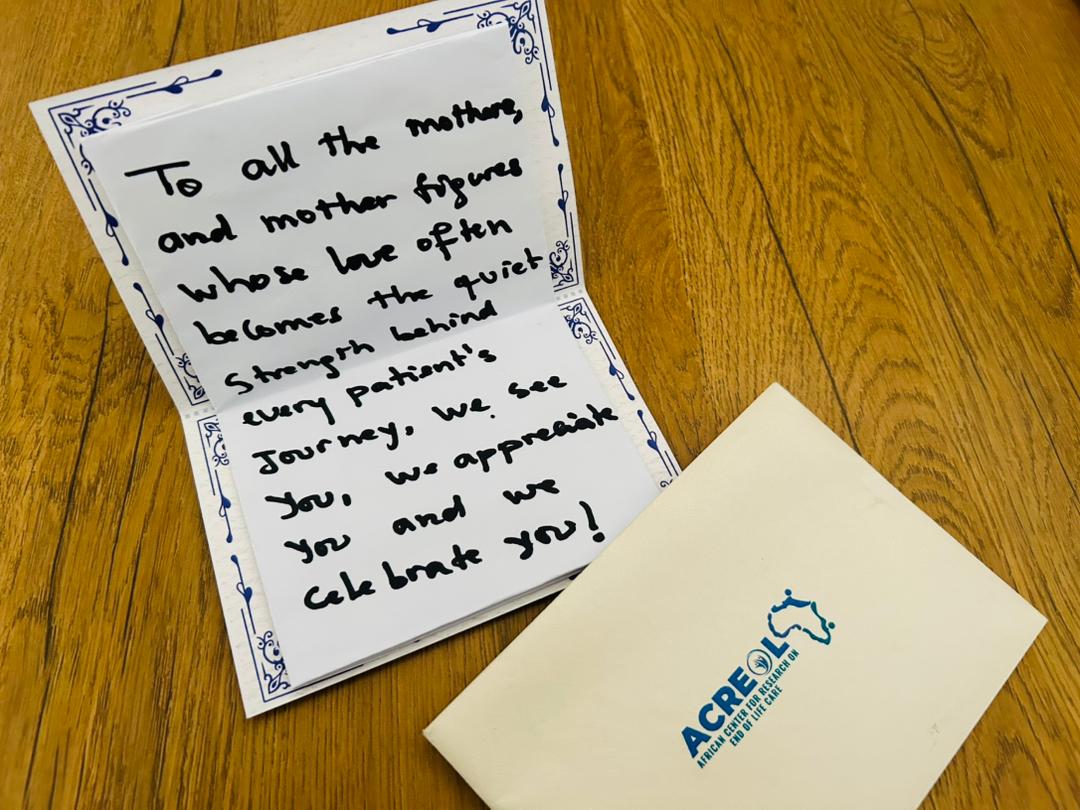 To all the mothers,
and mother figures
whose love often
becomes the quiet
strength behind
every patient's
Journey, we see
you, we appreciate
you and we
celebrate you!
ACREOL
AFRICAN CENTER FOR RESEARCH ON
END OF LIFE CARE